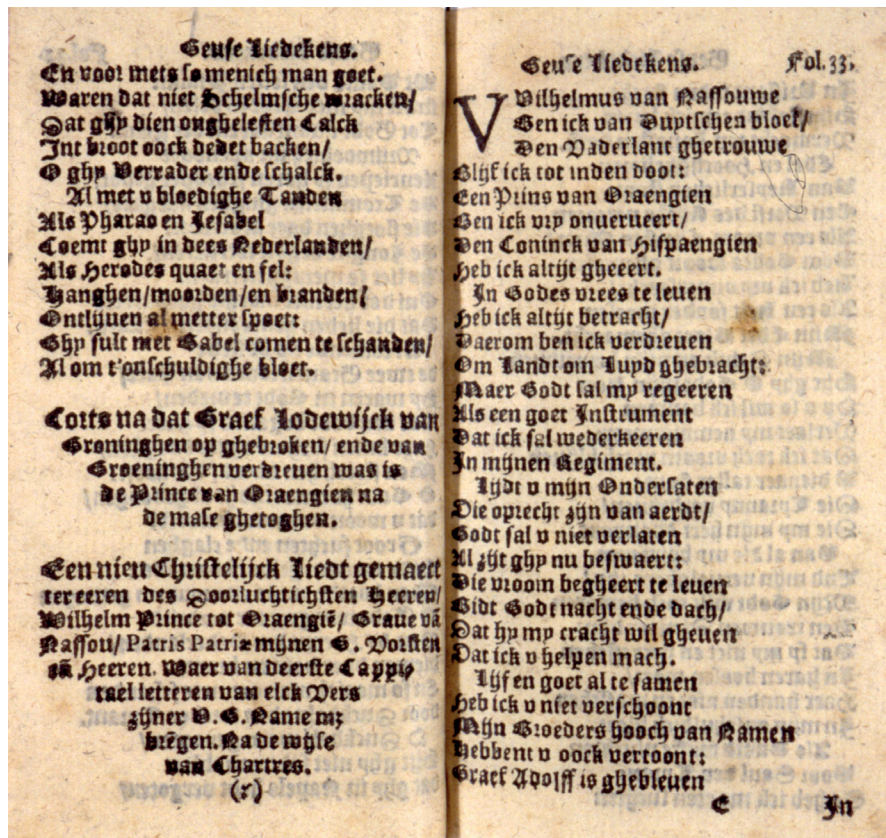 Geuse Liedekens.
En voor mets so menich man goet.
Waren dat niet Schelmsche wracken/
Dat ghy dien onghelesten Calck
Int broot oock dedet backen/
O ghy Verrader ende schalck.
Al met v bloedighe Tanden
Als Pharao en Jesabel
Coemt ghy in dees Nederlanden/
Als Herodes quaet en fel:
Hanghen/moorden/en branden/
Ontlijven al metter spoet:
Ghy sult met Babel comen te schanden/
Al om t'onschuldighe bloet.
Corts na dat Graef Lodewijck van
Groninghen op ghebroken/ ende van
Groeninghen verdreuen was is
de Prince van Oraengien na
de mase ghetoghen.
Een nieu Christelijck Liedt gemaect
ter eeren des Doorluchtichsten Heeren/
Wilhelm Prince tot Oraengiē/ Graue vā
Nassou/ Patris Patriæ mijnen G. Vorsten
eñ Heeren. Waer van deerste Cappi,
tael letteren van elck Vers
zijner V. G. Name m;
brēgen. Na de wijse
van Chartres.
(r)
Geuse Liedekens. Fol.33.
VVilhelmus van Nassouwe
Ben ick van Duytschen bloet/
Den Vaderlant ghetrouwe
Blijf ick tot inden doot:
Een Prins van Oraengien
Ben ick vry onuerueert/
Den Coninck van Hispaengien
Heb ick altijt gheeert.
In Godes vrees te leuen
Heb ick altijt betracht/
Daerom ben ick verdreuen
Om Landt om Luyd ghebracht:
Maer Godt sal my regeeren
Als een goet Instrument
Dat ick sal wederkeeren
In mijnen Regiment.
Lijdt v mijn Ondersaten
Die oprecht zijn van aerdt/
Godt sal v niet verlaten
Al zijt ghy nu beswaert:
Die vroom begheert te leuen
Bidt Godt nacht ende dach/
Dat hy my cracht wil gheuen
Dat ick v helpen mach.
Lijf en goet al te samen
Heb ick v niet verschoont
Mijn Broeders hooch van Namen
Hebbent v oock vertoont:
Graef Adolff is ghebleuen
E In